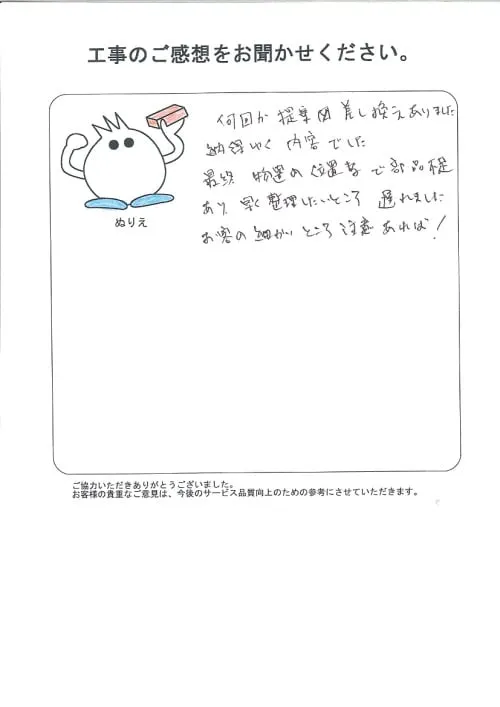 工事のご感想をお聞かせください。
何回か提案図差し換えありました
納得ゆく内容でした
最終 物置の位置等で部品不足
あり 早く整理したいところ 遅れました
お客の細かいところ注意あれば!
ぬりえ
ご協力いただきありがとうございました。
お客様の貴重なご意見は、今後のサービス品質向上のための参考にさせていただきます。